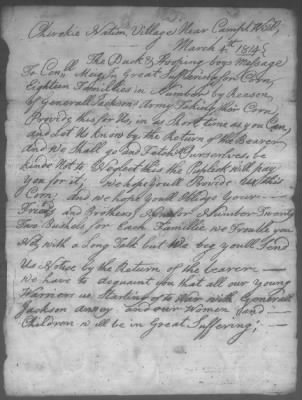 Cherokie Nation Village Near Campbl Will,
March 4th 1814
The Duck & Hooping boys Message
To Conll Meigs In Great Suffering for Corn,
Eighteen Families in Number by Reason
of General Jacksons Army Takeing their Corn
Provide this for Us, in as Short time as you Can,
and Let Us Know by the Return of the Bearer
and We Shall go and Fetch Ourselves, be
Kinde Not to Neglect this the will pay
you for it, We hope youll Provide Us this
Corn And we hope youll Oblidge Your
Friends and Brothers for Number Twenty
Two Bushels for Each Families We Trouble you
Not with a Long Talk but We beg youll Send
Us Notice by the Return of the bearer
We have to Acquaint you that all our Young
Warriors us Starting of to War with General
Jackson Armey and our Women and
Children will be in Great Suffering;